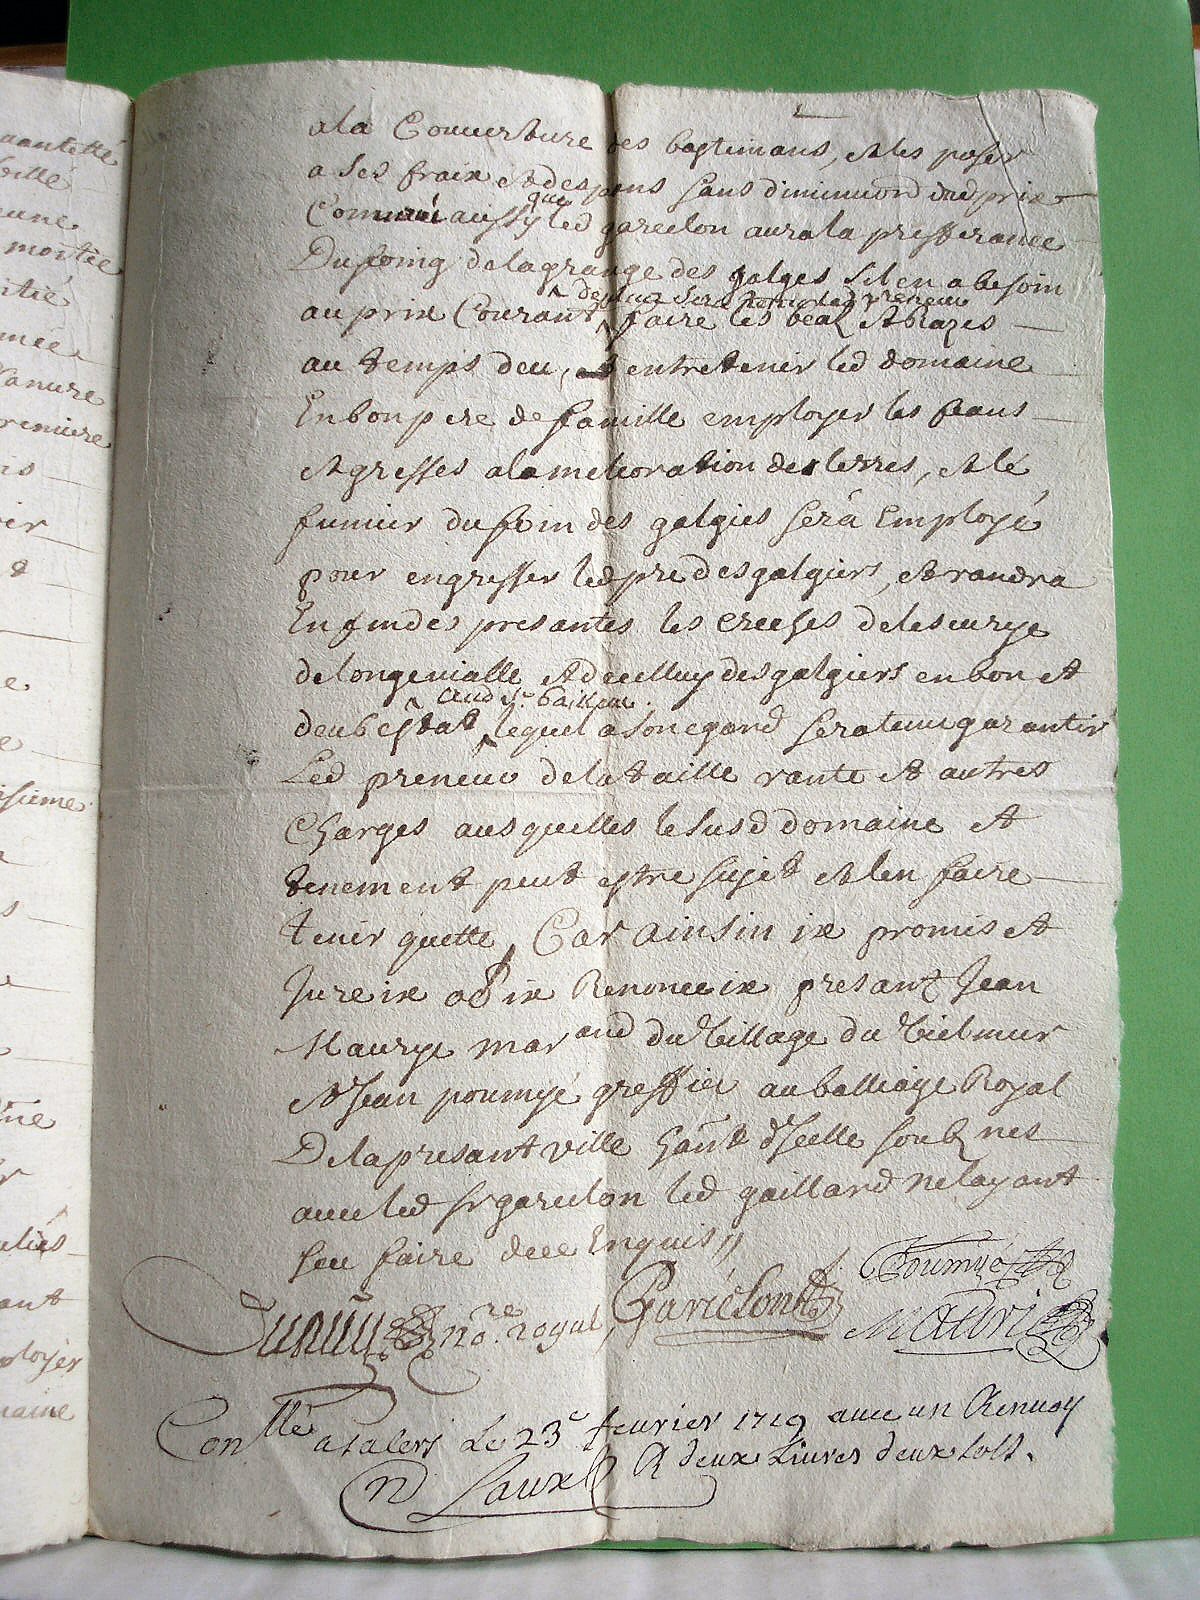 aantité
mortie
itié
premiere
ployer
maine
ala Couuerture des bastimans, et les poser
a ses fraix et despans sans diminuon dud prix
que
Comme aussy led garcelon aura la prefferance
Du foing de la grange des galges sil en a besoin
de plus sera tenu led preneur
au prix Courant faire les beal et Razes
au temps deu, et entretenir led domaine
En bon pere de famille employer les feans
et gresses a la melioration des terres, et le
fumier du foin des galgiers sera Employé
pour engresser led pre des galgiers, et randra
En fin des presantes les creches de lescurye
de longevialle et de celluy des galgiers en bon et
aud sr bailleur
deub estat lequel a son egard sera tenu garantir
Led preneur de la taille rante et autres
Charges ausquelles le susd domaine et
tenement peut estre sujet et len faire
tenir quitte, Car ainsin ix promis et
Jure ix ob ix Renonce ix presant Jean
Maurye marand du Village du Vielmur
et Jean poumyé greffier au balliage Royal
De la presant ville hant dicelle soubznes
auec led sr garcelon led gaillard ne layant
sceu faire de ce Enquis
Poumyé
no.re royal Garcelon Maurie
Contlle a salers Le 23e feurier 1719 auec un Renuoy
R deux Liures deux sols.